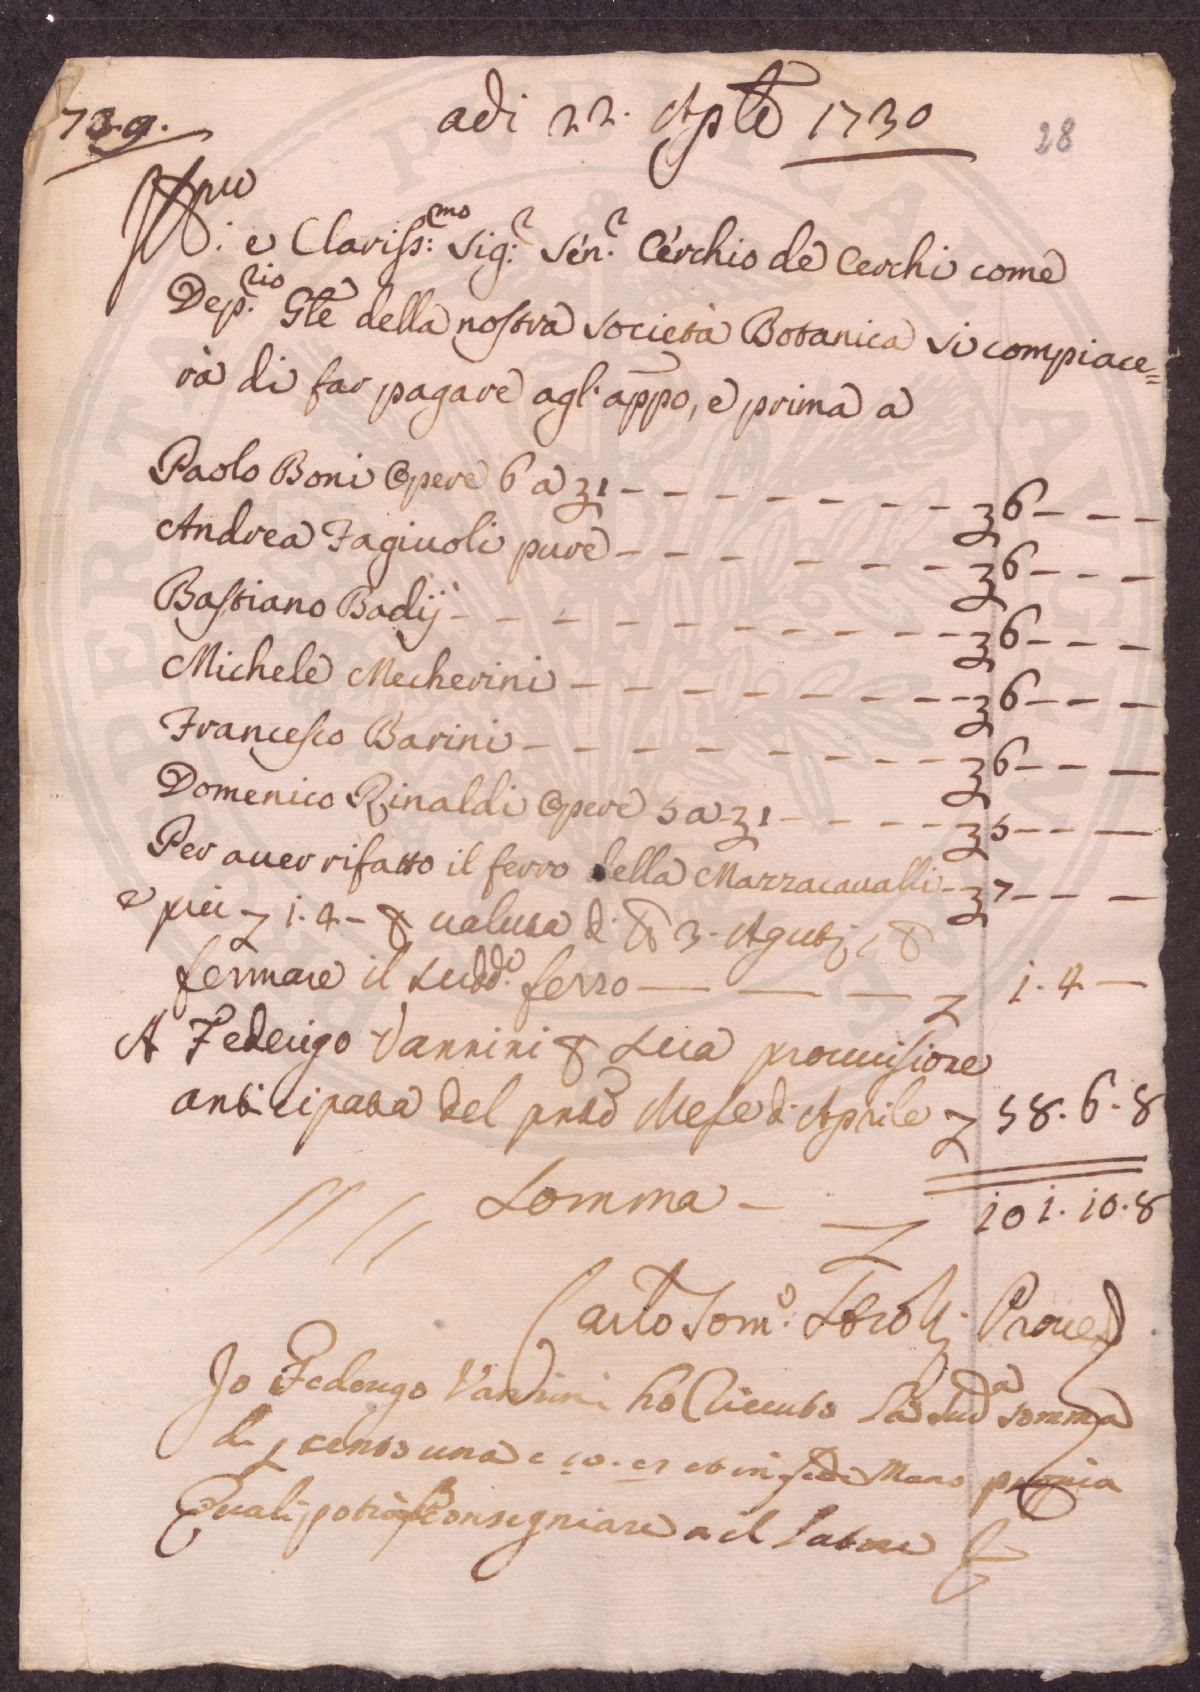 739.
adi 22. Aple 1730
28
e Clariss:mo Sig:r Sen:r Cerchio de Cerchi come
Dep:rio Gle della nostra società Botanica si compiace=
rà di far pagare agl'appo, e prima a
Paolo Boni Opere 6 a ʒ 1 - - - - - - - ʒ 6 - - -
Andrea Fagiuoli pure - - - - - - - ʒ 6 - - -
Bastiano Badij - - - - - - - - - - ʒ 6 - - -
Michele Mecherini - - - - - - - - ʒ 6 - - -
Francesco Barini - - - - - - - - - ʒ 6 - - -
Domenico Rinaldi Opere 5 a ʒ 1 - - - - ʒ 5 - - -
Per auer rifatto il ferro della Mazzacavalli - ʒ 7 - - -
e piu ʒ 1. 4 - valuta d 3. Aguti,
fermare il sudd:o ferro — — — ʒ 1. 4 —
A Federigo Vannini sua prouuisione
anticipata del pnte Mese d'Aprile ʒ 58. 6. 8
Somma - ʒ 101. 10. 8
Carlo Tom:o Proue
Io Federigo Vannini ho riceuto la sud:a somma
di ʒ cento una e 10. et in fede Mano propria
Quali potrà consegniare a il latore
PERITAT PVBLICAE AVGVM